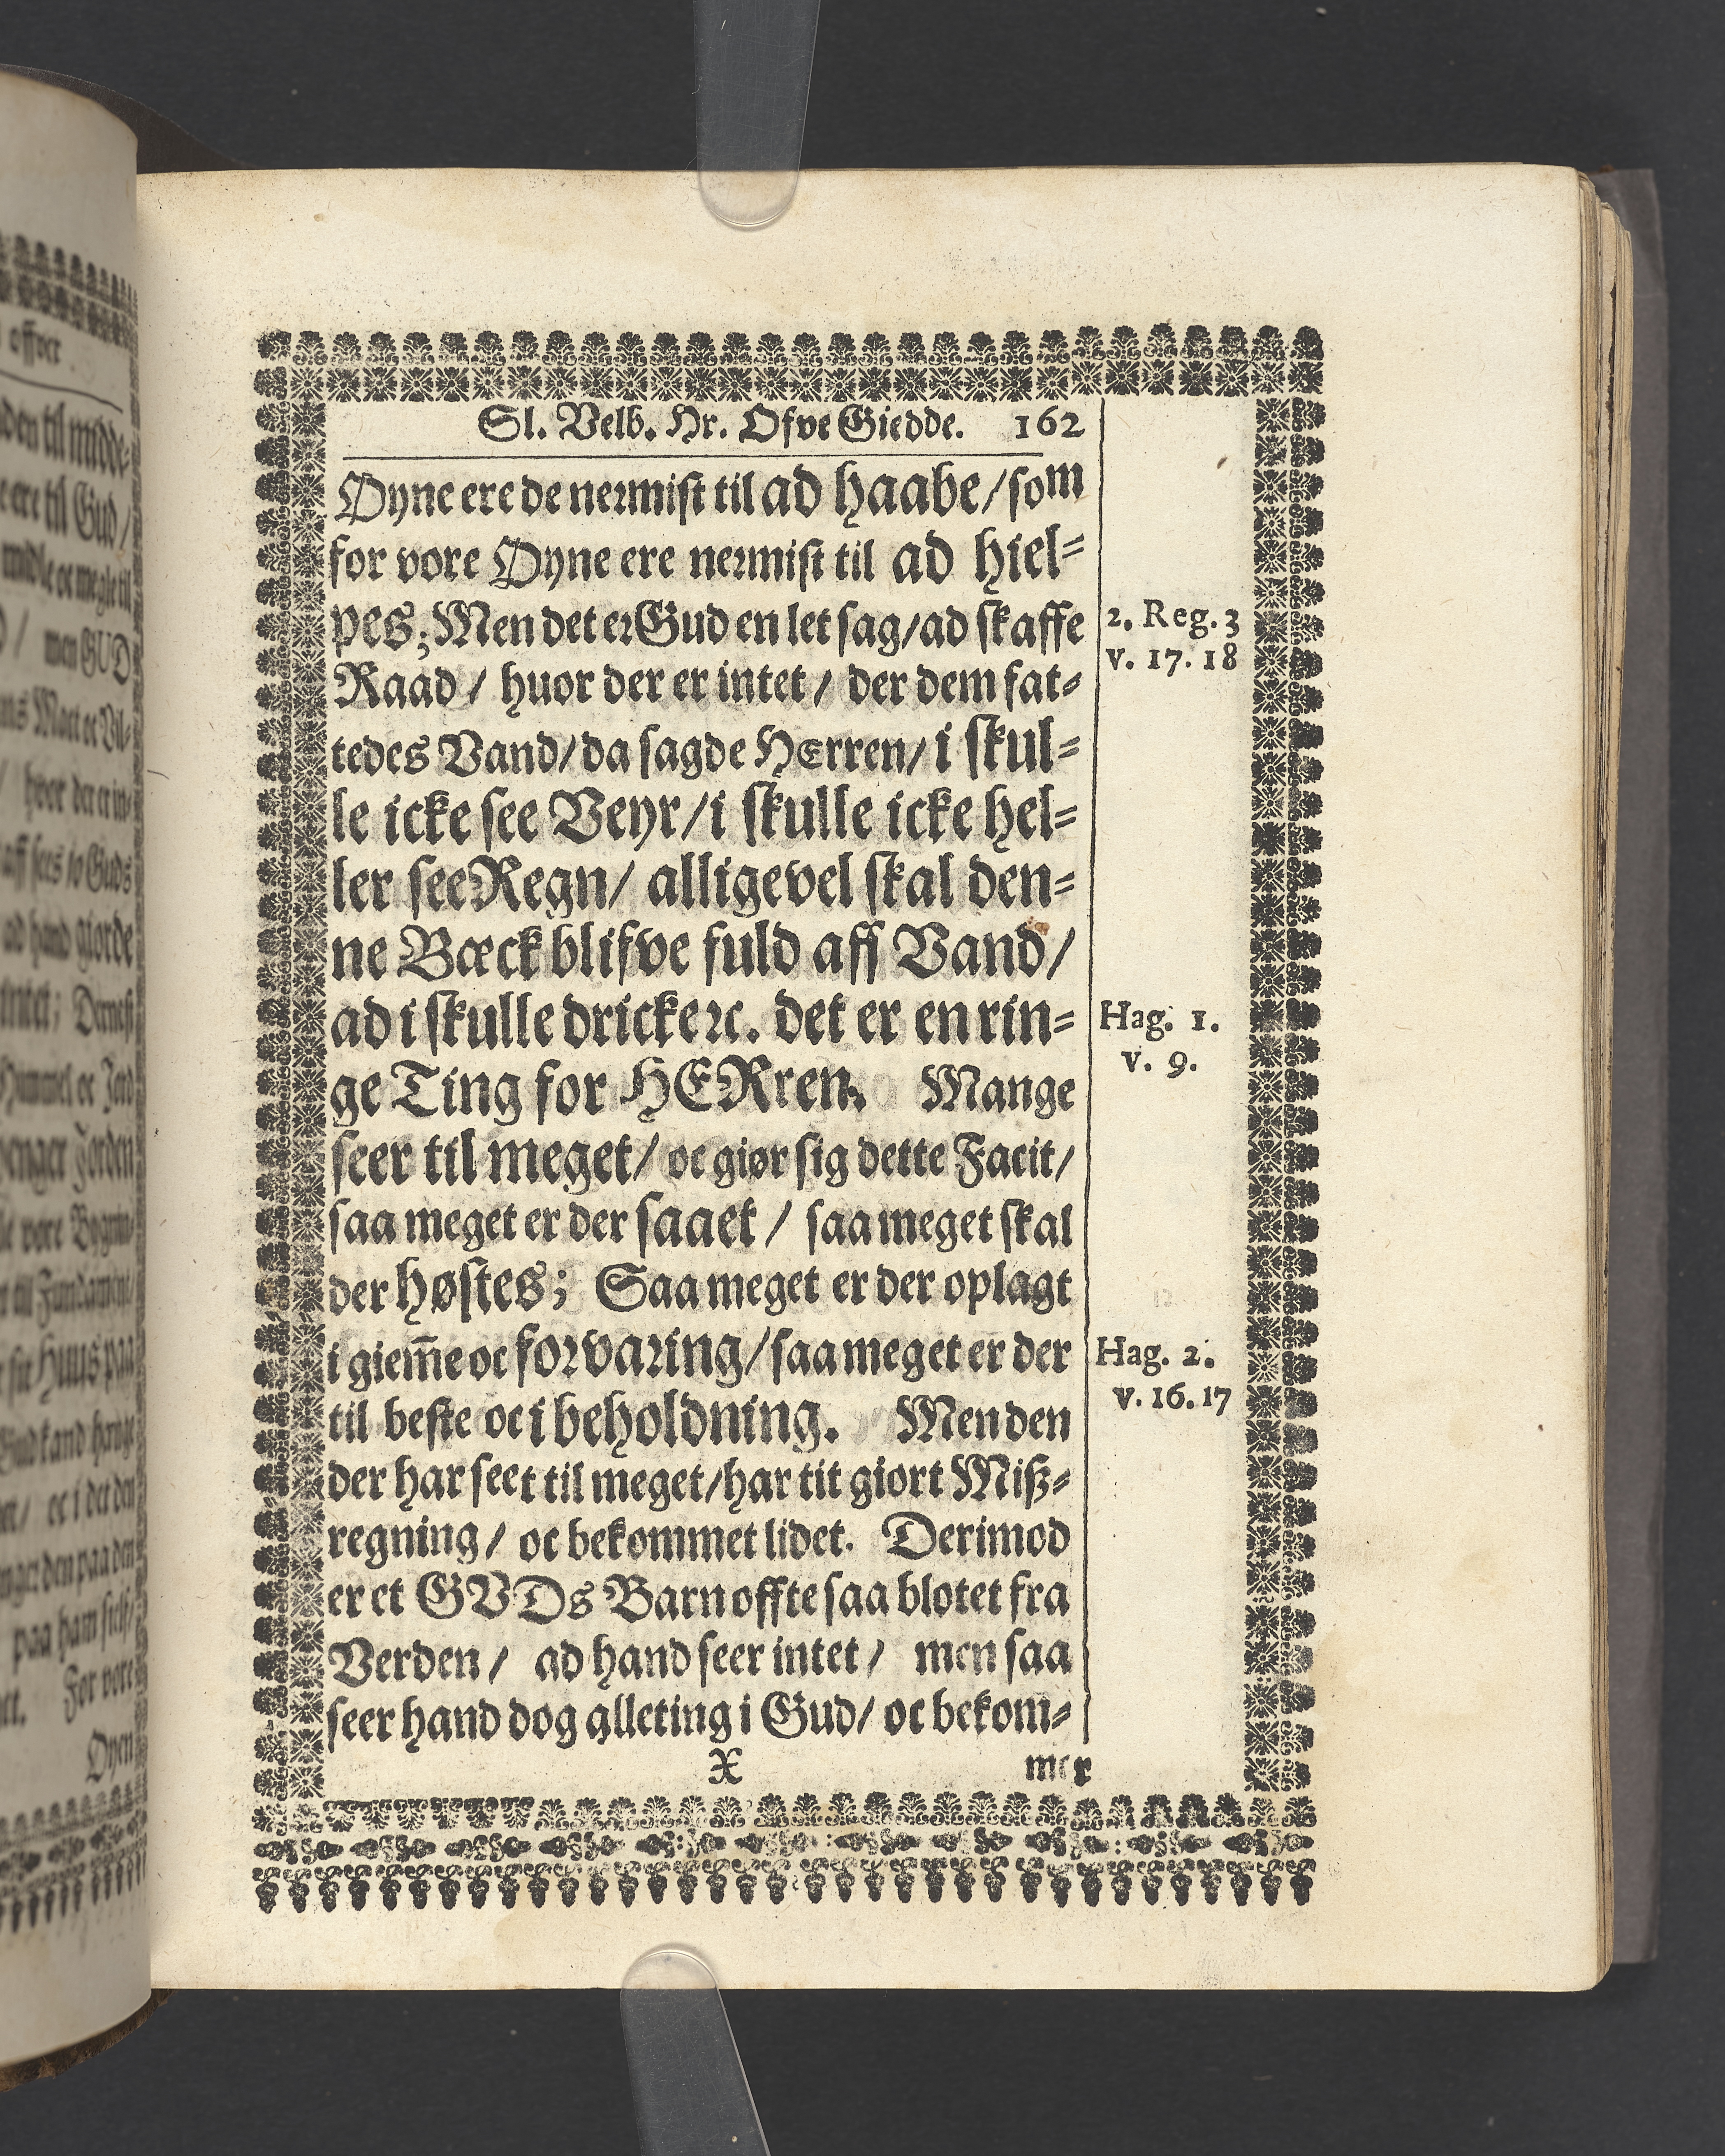 Sl. Velb. Hr. Ofve Giedde. 162
Øyne ere de nermist til ad haabe/ som
for vore Øyne ere nermist til ad hiel=
pes; Men det er Gud en let sag/ ad skaffe
Raad/ huor der er intet/ der dem fat=
tedes Vand/ da sagde HErren/ i skul=
le icke see Veyr/ i skulle icke hel=
ler see Regn/ alligevel skal den=
ne Bæck blifve fuld aff Vand/
ad i skulle dricke ꝛc. det er en rin=
ge Ting for HERren. Mange
seer til meget/ oc giør sig dette Facit/
saa meget er der saaet/ saa meget skal
der høstes; Saa meget er der oplagt
i giem̃e oc forvaring/ saa meget er der
til beste oc i beholdning. Men den
der har seet til meget/ har tit giort Miß=
regning/ oc bekommet lidet. Derimod
er et GVDs Barn offte saa blotet fra
Verden/ ad hand seer intet/ men saa
seer hand dog alleting i Gud/ oc bekom=
X mer
2. Reg. 3
v. 17. 18
Hag. 1.
v. 9.
Hag. 2.
v. 16. 17
offver
til Gud/
men GUD
ad hand giorde
intet; Dernest
Himmel oc Jord
Jorden
vore
Huus paa
oc i det den
den paa den
paa ham
For vore
Øyen